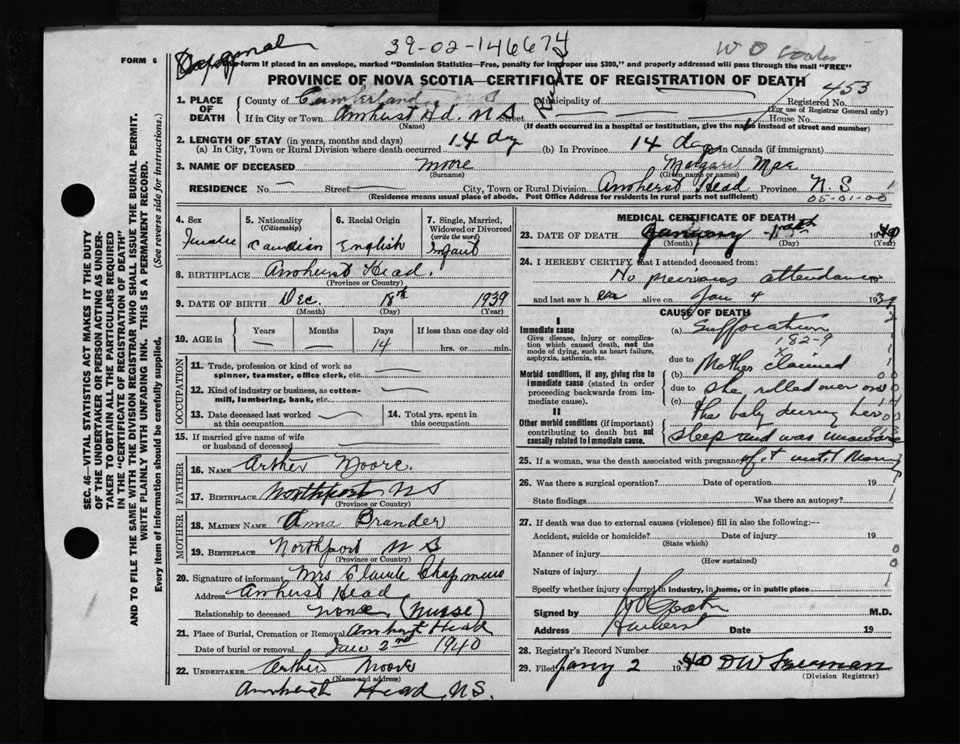 39-02-146674
W D Coates
FORM 6
form if placed in an envelope, marked "Dominion Statistics—Free, penalty for improper use $300," and properly addressed will pass through the mail "FREE"
PROVINCE OF NOVA SCOTIA—CERTIFICATE OF REGISTRATION OF DEATH
453
1. PLACE OF DEATH
County of Cumberland N S Municipality of
Registered No.
(For use of Registrar General only)
If in City or Town Amherst Hd. N S Street House No.
(Name) (If death occurred in a hospital or institution, give the name instead of street and number)
2. LENGTH OF STAY (in years, months and days)
(a) In City, Town or Rural Division where death occurred 14 dy (b) In Province 14 days In Canada (if immigrant)
3. NAME OF DECEASED Moore Margaret Mae
(Surname) (Given name or names)
RESIDENCE No. — Street City, Town or Rural Division Amherst Head Province N. S
(Residence means usual place of abode. Post Office Address for residents in rural parts not sufficient)
05-01-00
4. Sex Female
5. Nationality (Citizenship) Canadian
6. Racial Origin English
7. Single, Married, Widowed or Divorced (write the word) Infant
8. BIRTHPLACE Amherst Head.
(Province or Country)
9. DATE OF BIRTH Dec. 18th 1939
(Month) (Day) (Year)
10. AGE in
Years Months Days If less than one day old
— — 14 hrs. or min.
OCCUPATION
11. Trade, profession or kind of work as spinner, teamster, office clerk, etc.
12. Kind of industry or business, as cotton-mill, lumbering, bank, etc.
13. Date deceased last worked at this occupation
14. Total yrs. spent in this occupation
15. If married give name of wife or husband of deceased
FATHER
16. NAME Arther Moore.
17. BIRTHPLACE Northport N S
(Province or Country)
MOTHER
18. MAIDEN NAME Anna Brander
19. BIRTHPLACE Northport N S
(Province or Country)
20. Signature of informant Mrs Claude Chapman
Address Amherst Head
Relationship to deceased none (Nurse)
21. Place of Burial, Cremation or Removal Amherst Head
Date of burial or removal Jan 2nd 1940
22. UNDERTAKER Arther Moore
(Name and address)
Amherst Head N.S.
MEDICAL CERTIFICATE OF DEATH
23. DATE OF DEATH 1940
(Month) (Day) (Year)
24. I HEREBY CERTIFY that I attended deceased from:
No previous attendance 19
and last saw h er alive on Jan 4 19
CAUSE OF DEATH
I
Immediate cause
Give disease, injury or complication which caused death, not the mode of dying, such as heart failure, asphyxia, asthenia, etc.
(a) Suffocation
182-9
due to
Morbid conditions, if any, giving rise to immediate cause (stated in order proceeding backwards from immediate cause).
(b) Mother claimed
due to she rolled over on
(c) the baby during her
II
Other morbid conditions (if important) contributing to death but not causally related to immediate cause.
sleep and was unaware
25. If a woman, was the death associated with pregnancy of it until Morn
26. Was there a surgical operation? Date of operation 19
State findings Was there an autopsy?
27. If death was due to external causes (violence) fill in also the following:—
Accident, suicide or homicide? Date of injury 19
(State which)
Manner of injury
(How sustained)
Nature of injury
Specify whether injury occurred in industry, in home, or in public place
Signed by M.D.
Address Amherst Date 19
28. Registrar's Record Number
29. Filed Jany 2 1940
(Division Registrar)
SEC. 46—VITAL STATISTICS ACT MAKES IT THE DUTY OF THE UNDERTAKER OR PERSON ACTING AS UNDERTAKER TO OBTAIN ALL THE PARTICULARS REQUIRED IN THE "CERTIFICATE OF REGISTRATION OF DEATH" AND TO FILE THE SAME WITH THE DIVISION REGISTRAR WHO SHALL ISSUE THE BURIAL PERMIT.
WRITE PLAINLY WITH UNFADING INK. THIS IS A PERMANENT RECORD.
Every item of information should be carefully supplied. (See reverse side for instructions.)